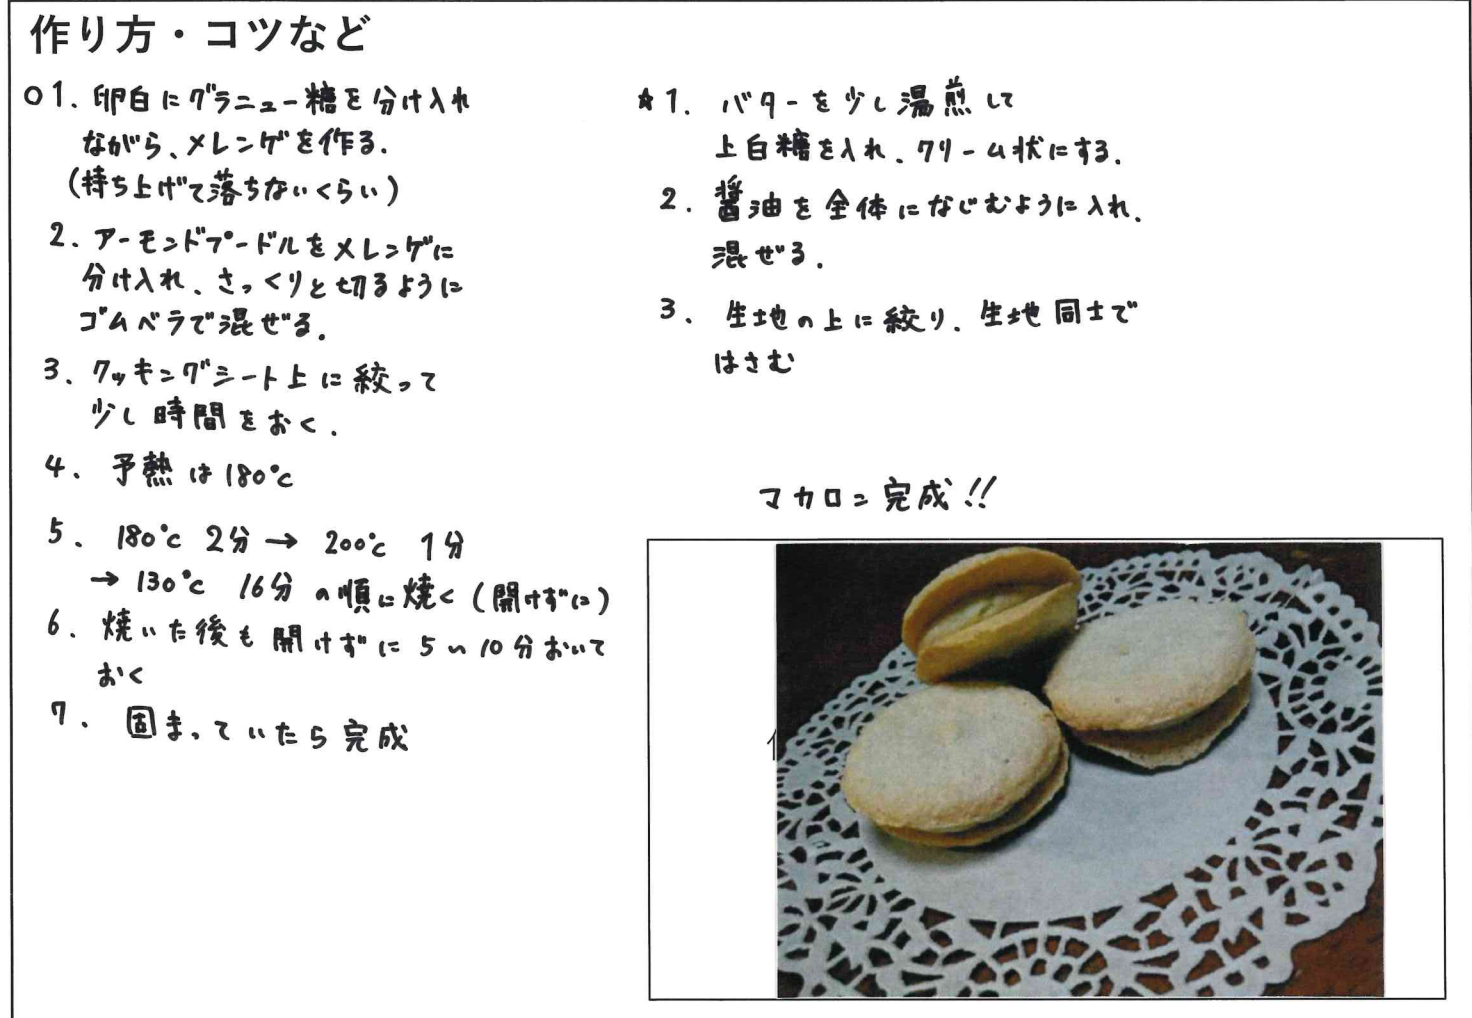 作り方・コツなど
○1. 卵白にグラニュー糖を分け入れ
ながら、メレンゲを作る.
(持ち上げて落ちないくらい)
2. アーモンドプードルをメレンゲに
分け入れ、さっくりと切るように
ゴムベラで混ぜる.
3. クッキングシート上に絞って
少し時間をおく.
4. 予熱は180℃
5. 180℃ 2分→ 200℃ 1分
→130℃ 16分の順に焼く(開けずに)
6. 焼いた後も開けずに5〜10分おいて
おく
7. 固まっていたら完成
★1. バターを少し湯煎して
上白糖を入れ、クリーム状にする.
2. 醤油を全体になじむように入れ、
混ぜる.
3. 生地の上に絞り、生地同士で
はさむ
マカロン完成!!